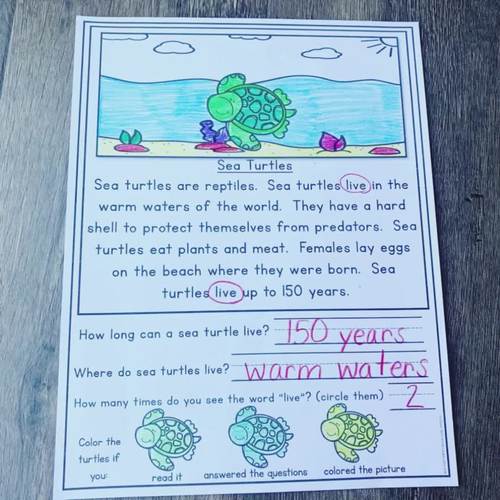 Sea Turtles
Sea turtles are reptiles. Sea turtles live in the
warm waters of the world. They have a hard
shell to protect themselves from predators. Sea
turtles eat plants and meat. Females lay eggs
on the beach where they were born. Sea
turtles live up to 150 years.
How long can a sea turtle live? 150 years
Where do sea turtles live? warm waters
How many times do you see the word "live"? (circle them) 2
Color the
turtles if
you:
read it
answered the questions
colored the picture